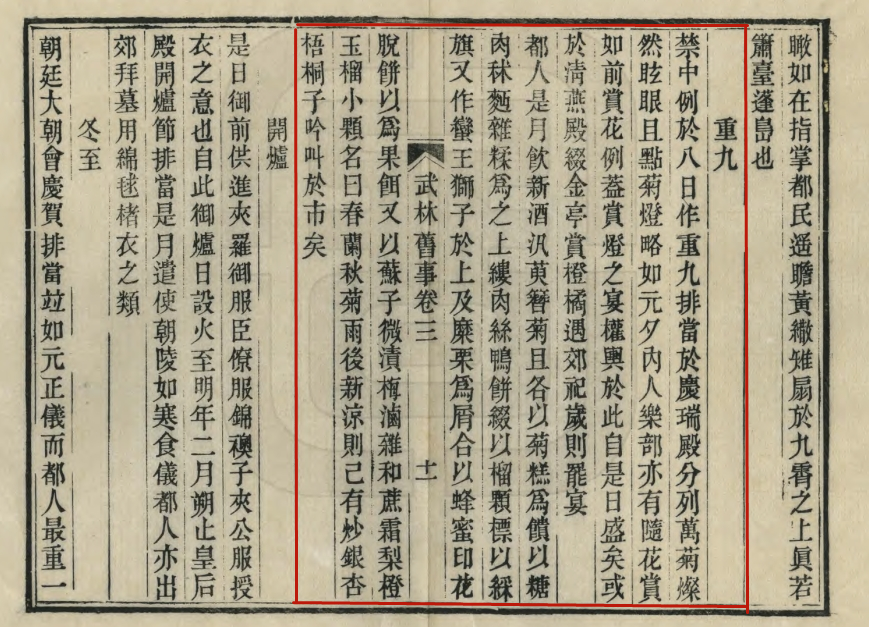 瞰如在指掌都民遥瞻黃繖雉扇於九霄之上眞若
簫臺蓬島也
重九
禁中例於八日作重九排當於慶瑞殿分列萬菊燦
然眩眼且點菊燈略如元夕內人樂部亦有隨花賞
如前賞花例蓋賞燈之宴權輿於此自是日盛矣或
於清燕殿綴金亭賞橙橘遇郊祀歲則罷宴
都人是月飮新酒汎萸簪菊且各以菊糕爲饋以糖
肉秫麪雜糅爲之上縷肉絲鴨餅綴以榴顆標以綵
旗又作蠻王獅子於上及糜栗爲屑合以蜂蜜印花
武林舊事卷三 十一
脫餅以爲果餌又以蘇子微漬梅滷雜和蔗霜梨橙
玉榴小顆名曰春蘭秋菊雨後新凉則已有炒銀杏
梧桐子吟叫於市矣
開爐
是日御前供進夾羅御服臣僚服錦襖子夾公服授
衣之意也自此御爐日設火至明年二月朔止皇后
殿開爐節排當是月遣使朝陵如寒食儀都人亦出
郊拜墓用綿毬楮衣之類
冬至
朝廷大朝會慶賀排當竝如元正儀而都人最重一